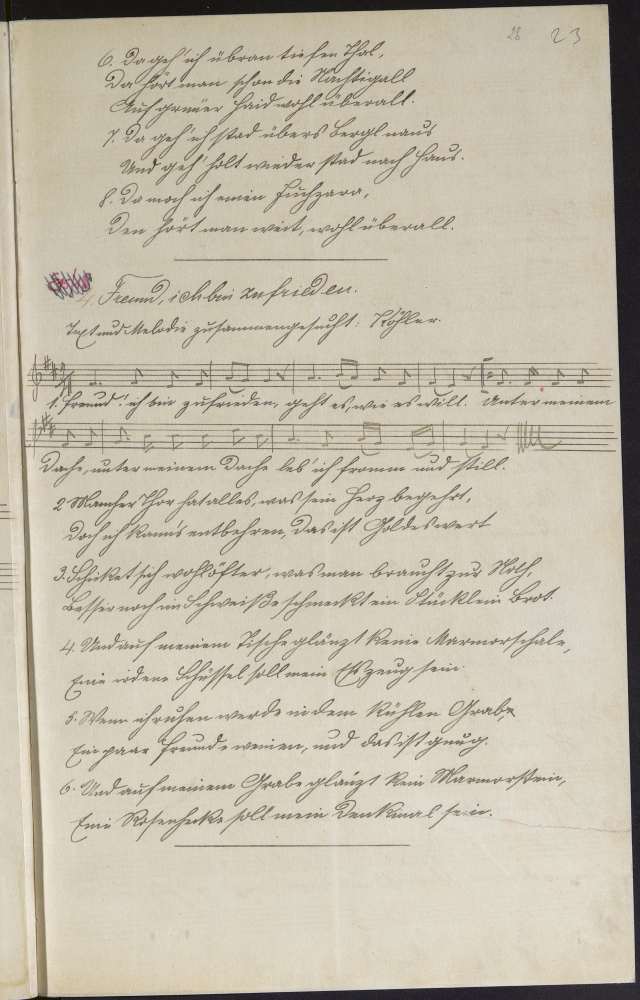 28 23
6. Da geh' ich übran tiefen Thal,
Da hört man schon die Nachtigall
Auf grüner Haid wohl überall.
7. Da geh' ich stad übers Bergl naus
Und geh' halt wieder stad nach Haus.
8. Da mach ich einen Juchzara,
Den hört man weit, wohl überall.
Freund, ich bin zufrieden.
Text und Melodie zusammengesucht: Köhler.
1. Freund! ich bin zufrieden, geht es, wie es will. Unter meinem
Dache, unter meinem Dache leb' ich fromm und still.
2 Mancher Thor hat alles, was sein Herz begehrt,
Doch ich kann's entbehren, das ist Goldes wert
3. Schicket sich wohl öfter, was man braucht zur Noth,
Besser noch im Schweiße schmeckt ein Stücklein Brot.
4. Und auf meinem Tische glänzt keine Marmorschale,
Eine irdene Schüssel soll mein Eßzeug sein.
5. Wenn ich ruhen werde in dem kühlen Grabe
Ein paar Freunde weinen, und das ist gnug.
6. Und auf meinem Grabe glänzt kein Marmorstein,
Eine Rosenhecke soll mein Denkmal sein.